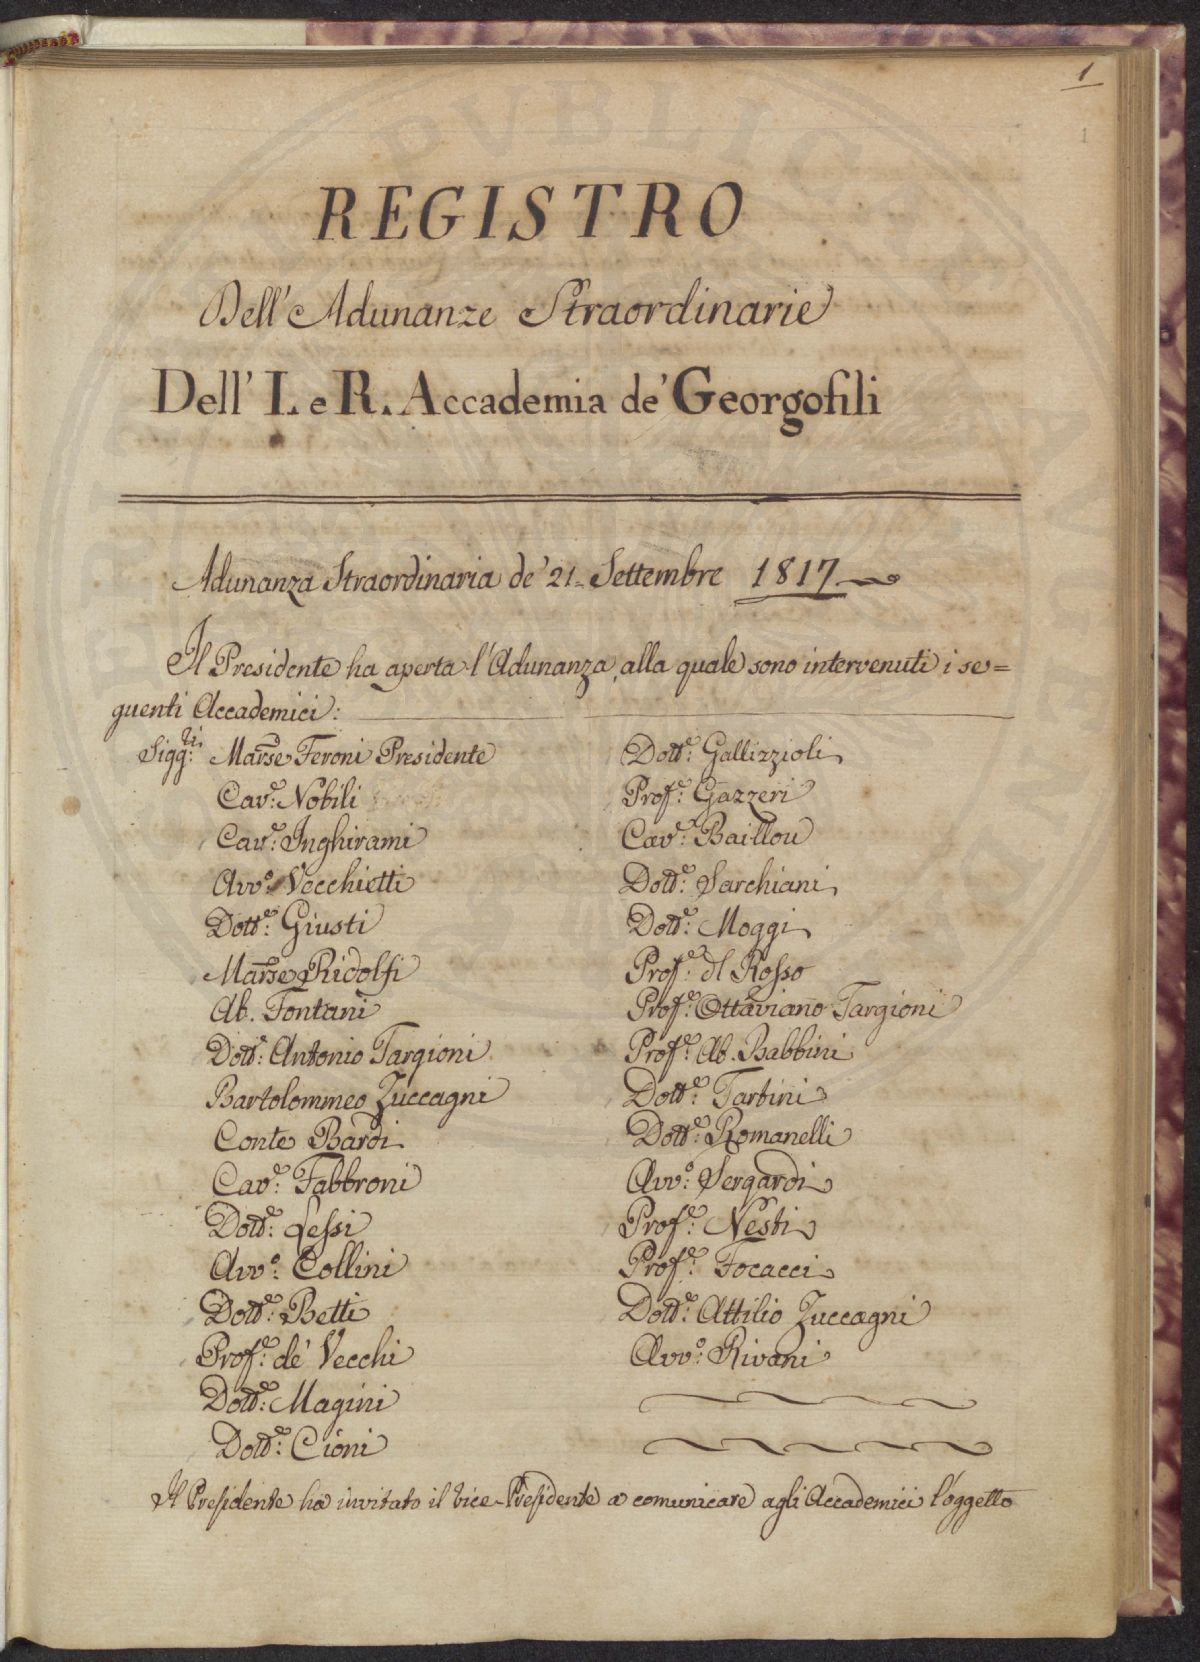 1
1
REGISTRO
Dell'Adunanze Straordinarie
Dell' I. e R. Accademia de' Georgofili
Adunanza Straordinaria de' 21. Settembre 1817
Il Presidente ha aperta l'Adunanza, alla quale sono intervenuti i se=
guenti Accademici:
Sigg.ri Marse Feroni Presidente
Cav.e Nobili
Cav.e Inghirami
Avv.o Vecchietti
Dott.e Giusti
Marse Ridolfi
Ab. Fontani
Dott.e Antonio Targioni
Bartolommeo Zuccagni
Conte Bardi
Cav.e Fabbroni
Dott.e Lessi
Avv.o Collini
Dott.e Betti
Prof.e de' Vecchi
Dott.e Magini
Dott.e Cioni
Dott.e Gallizzioli
Prof.e Gazzeri
Cav.e Baillou
Dott.e Sarchiani
Dott.e Moggi
Prof.e del Rosso
Prof.e Ottaviano Targioni
Prof.e Ab. Babbini
Dott.e Tartini
Dott.e Romanelli
Avv.o Sergardi
Prof.e Nesti
Prof.e Focacci
Dott.e Attilio Zuccagni
Avv.o Rivani
Il Presidente ha invitato il vice-Presidente a comunicare agli Accademici l'oggetto